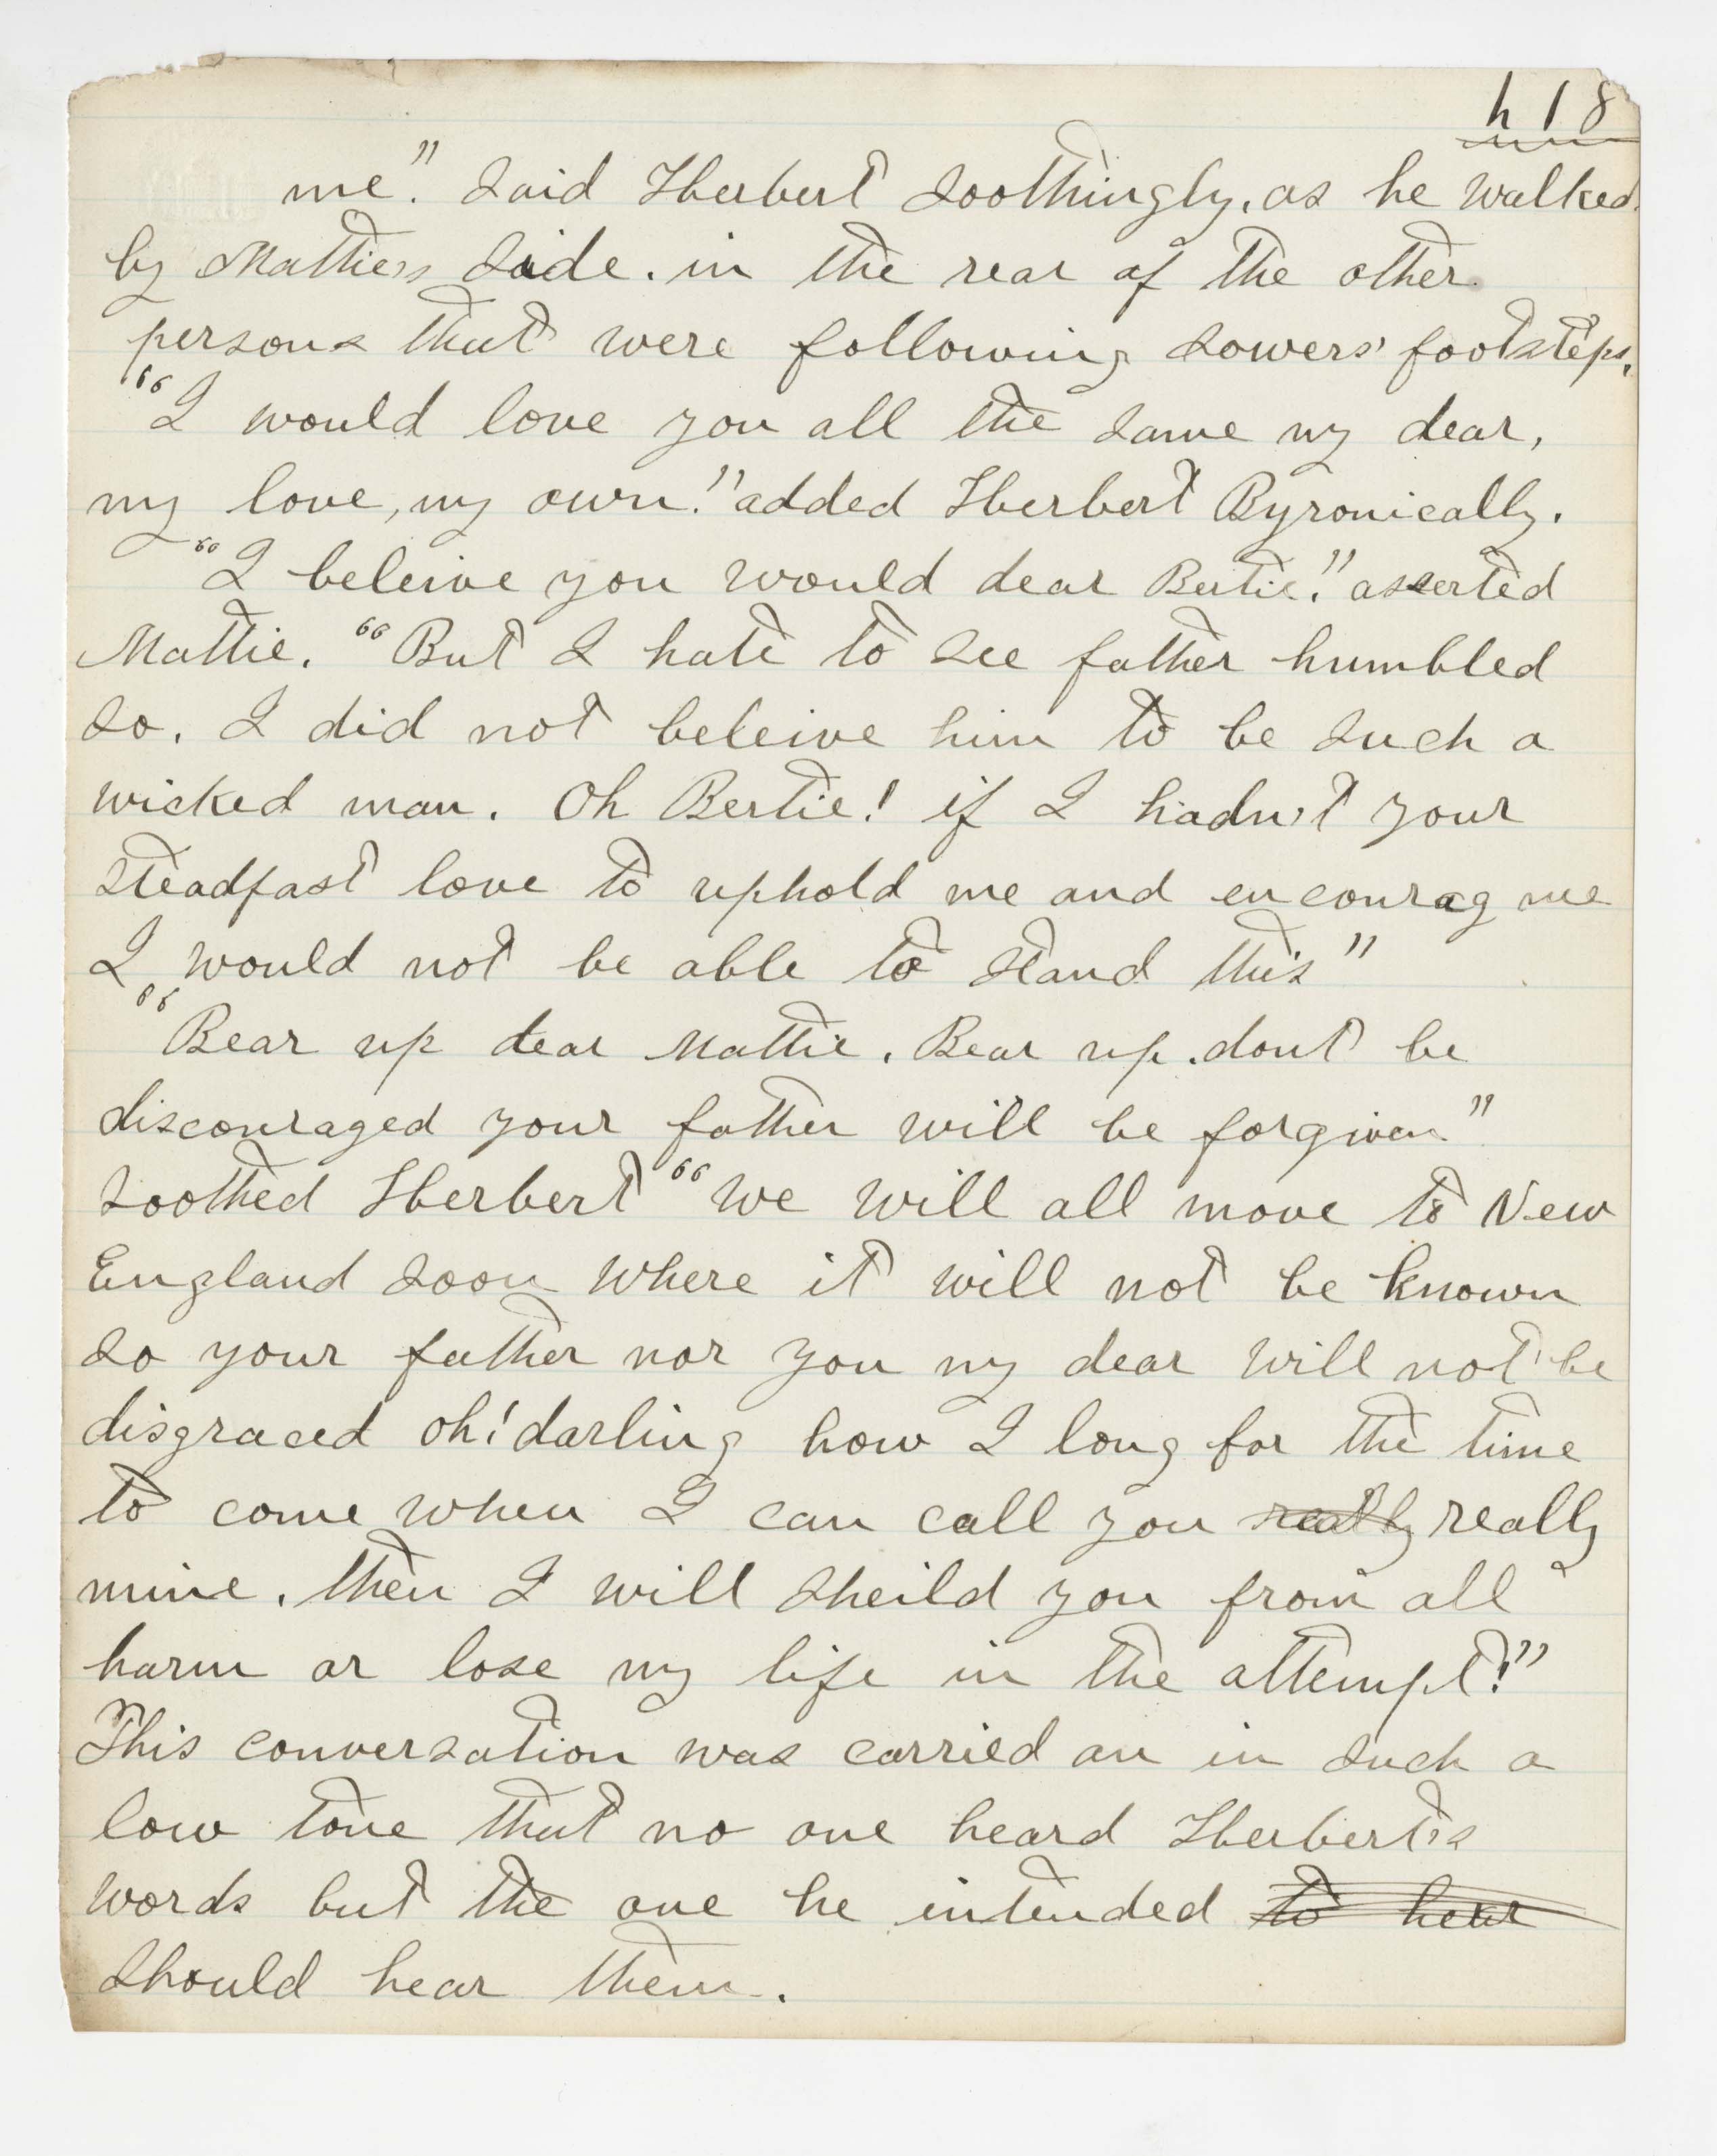 h 18
me." said Herbert soothingly, as he walked
by Mattie's side. in the rear of the other
persons that were following Sowers' footsteps.
"I would love you all the same my dear,
my love, my own!" added Herbert Byronically.
"I beleive you would dear Bertie!" asserted
Mattie. "But I hate to see father humbled
so. I did not beleive him to be such a
wicked man. Oh Bertie! if I hadn't your
steadfast love to uphold me and encourag me
I would not be able to stand this"
"Bear up dear Mattie. Bear up. dont be
discouraged your father will be forgiven"
soothed Herbert "we will all move to New
England soon where it will not be known
so your father nor you my dear will not be
disgraced oh! darling how I long for the time
to come when I can call you really really
mine. then I will sheild you from all
harm or lose my life in the attempt!"
This conversation was carried on in such a
low tone that no one heard Herbert's
words but the one he intended to hear
should hear them.